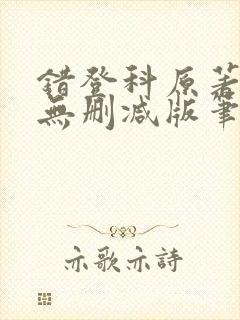 錯登科原著
無刪減版筆
亦歌亦詩